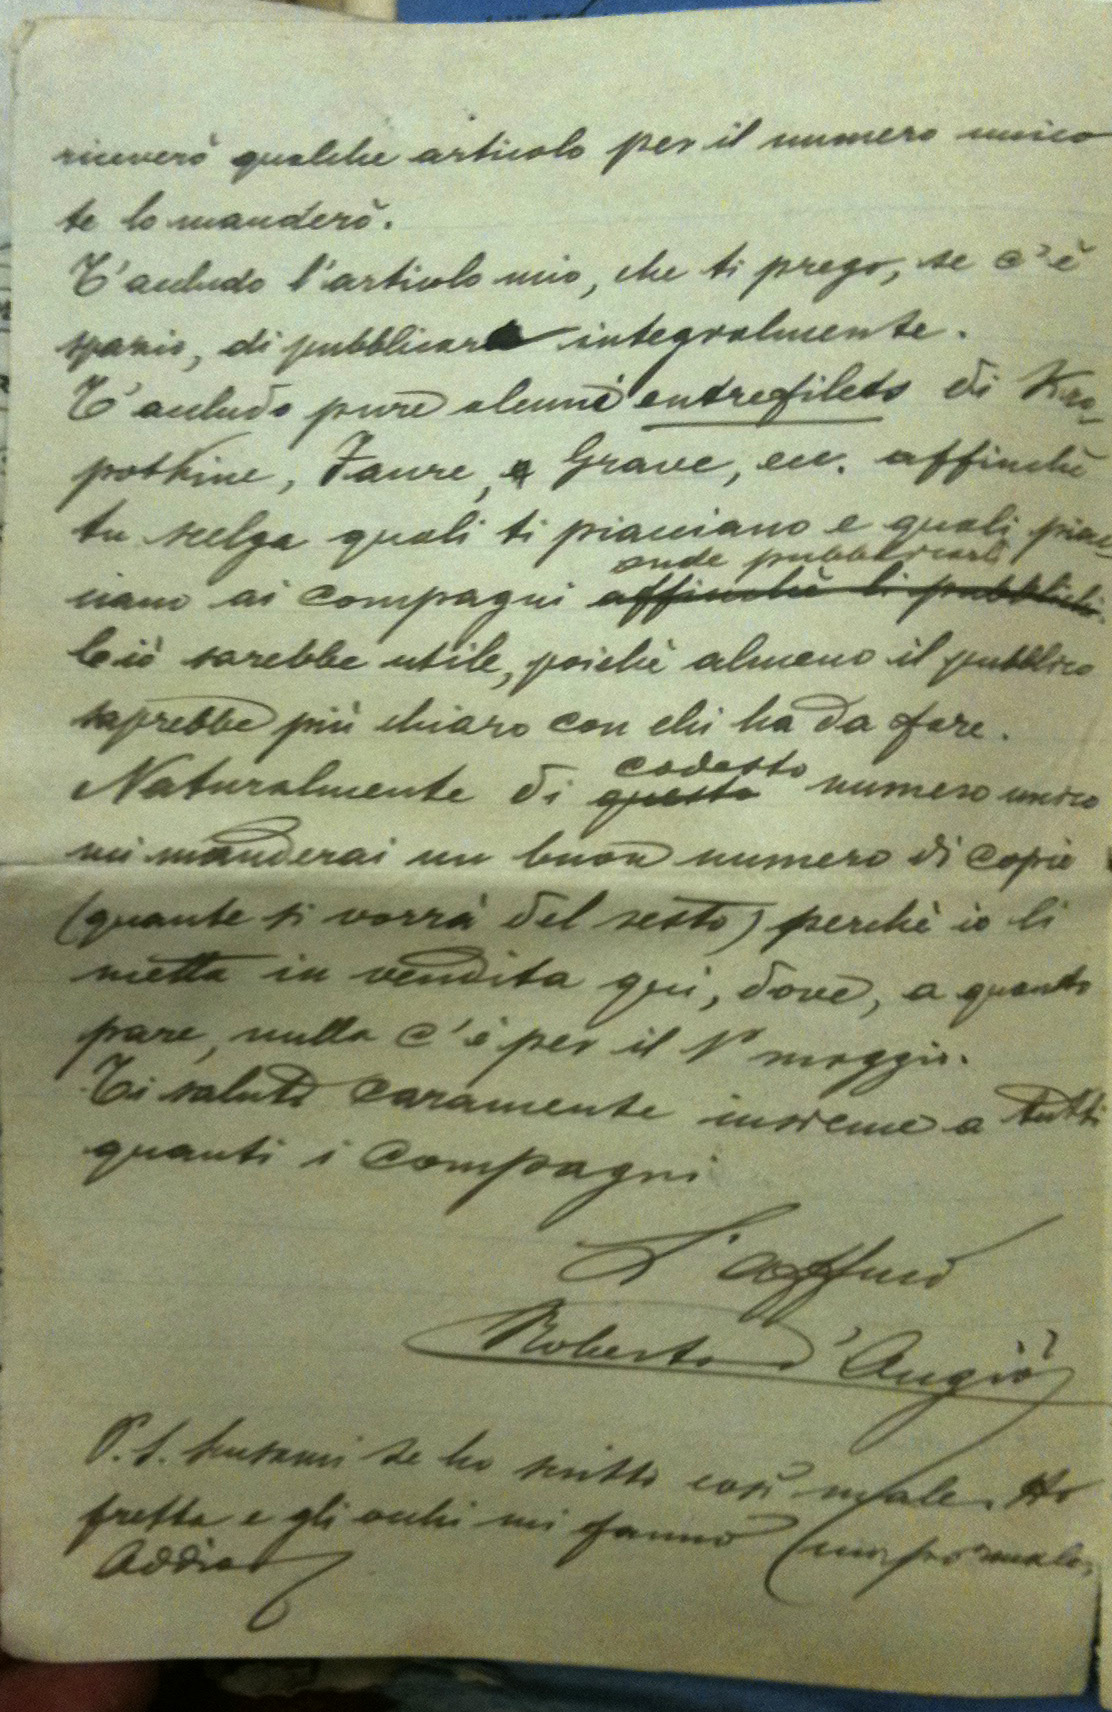 riceverò qualche articolo per il numero unico
te lo manderò.
T'accludo l'articolo mio, che ti prego, se c'è
spazio, di pubblicare integralmente.
T'accludo pure alcuni entrefilets di Kro-
potkine, Faure, e Grave, ecc. affinchè
tu scelga quali ti piacciano e quali piac-
onde pubblicarli
ciano ai compagni affinchè li pubblichi.
Ciò sarebbe utile, poichè almeno il pubblico
saprebbe più chiaro con chi ha da fare.
codesto
Naturalmente di questo numero unico
mi manderai un buon numero di copie
(quante ti vorrà del sesto) perchè io li
metta in vendita qui, dove, a quanto
pare, nulla c'è per il 1º maggio.
Ti saluto caramente insieme a tutti
quanti i compagni
L'affmo
Roberto d'Angiò
P.S. Scusami se ho scritto così male. Ho
fretta e gli occhi mi fanno un po' male.
Addio